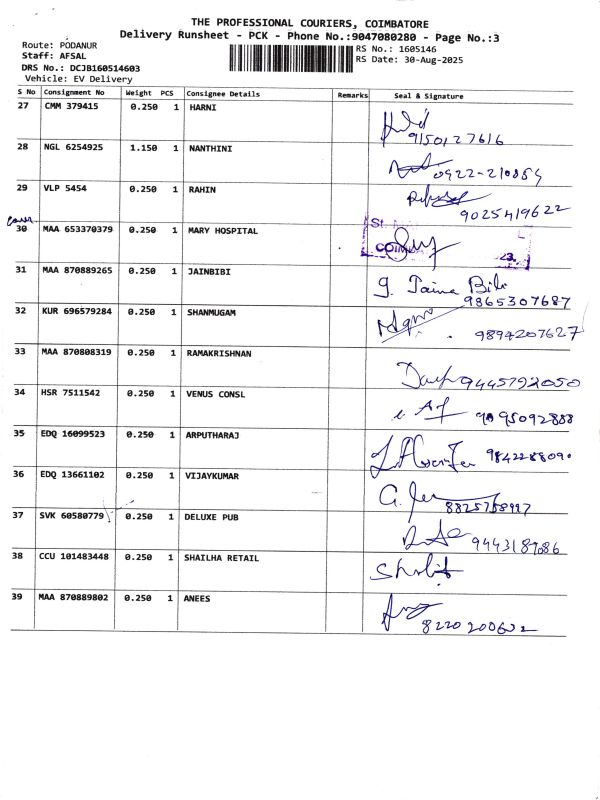 THE PROFESSIONAL COURIERS, COIMBATORE
Delivery Runsheet - PCK - Phone No.:9047080280 - Page No.:3
Route: PODANUR
Staff: AFSAL
DRS No.: DCJB160514603
Vehicle: EV Delivery
RS No.: 1605146
RS Date: 30-Aug-2025
S No Consignment No Weight PCS Consignee Details Remarks Seal & Signature
27 CMM 379415 0.250 1 HARNI
9150127616
28 NGL 6254925 1.150 1 NANTHINI
0422-210854
29 VLP 5454 0.250 1 RAHIN
9025419622
30 MAA 653370379 0.250 1 MARY HOSPITAL
31 MAA 870889265 0.250 1 JAINBIBI
9865307687
32 KUR 696579284 0.250 1 SHANMUGAM
9894207627
33 MAA 870808319 0.250 1 RAMAKRISHNAN
9445792050
34 HSR 7511542 0.250 1 VENUS CONSL
35 EDQ 16099523 0.250 1 ARPUTHARAJ
36 EDQ 13661102 0.250 1 VIJAYKUMAR
37 SVK 60580779 0.250 1 DELUXE PUB
38 CCU 101483448 0.250 1 SHAILHA RETAIL
39 MAA 870889802 0.250 1 ANEES